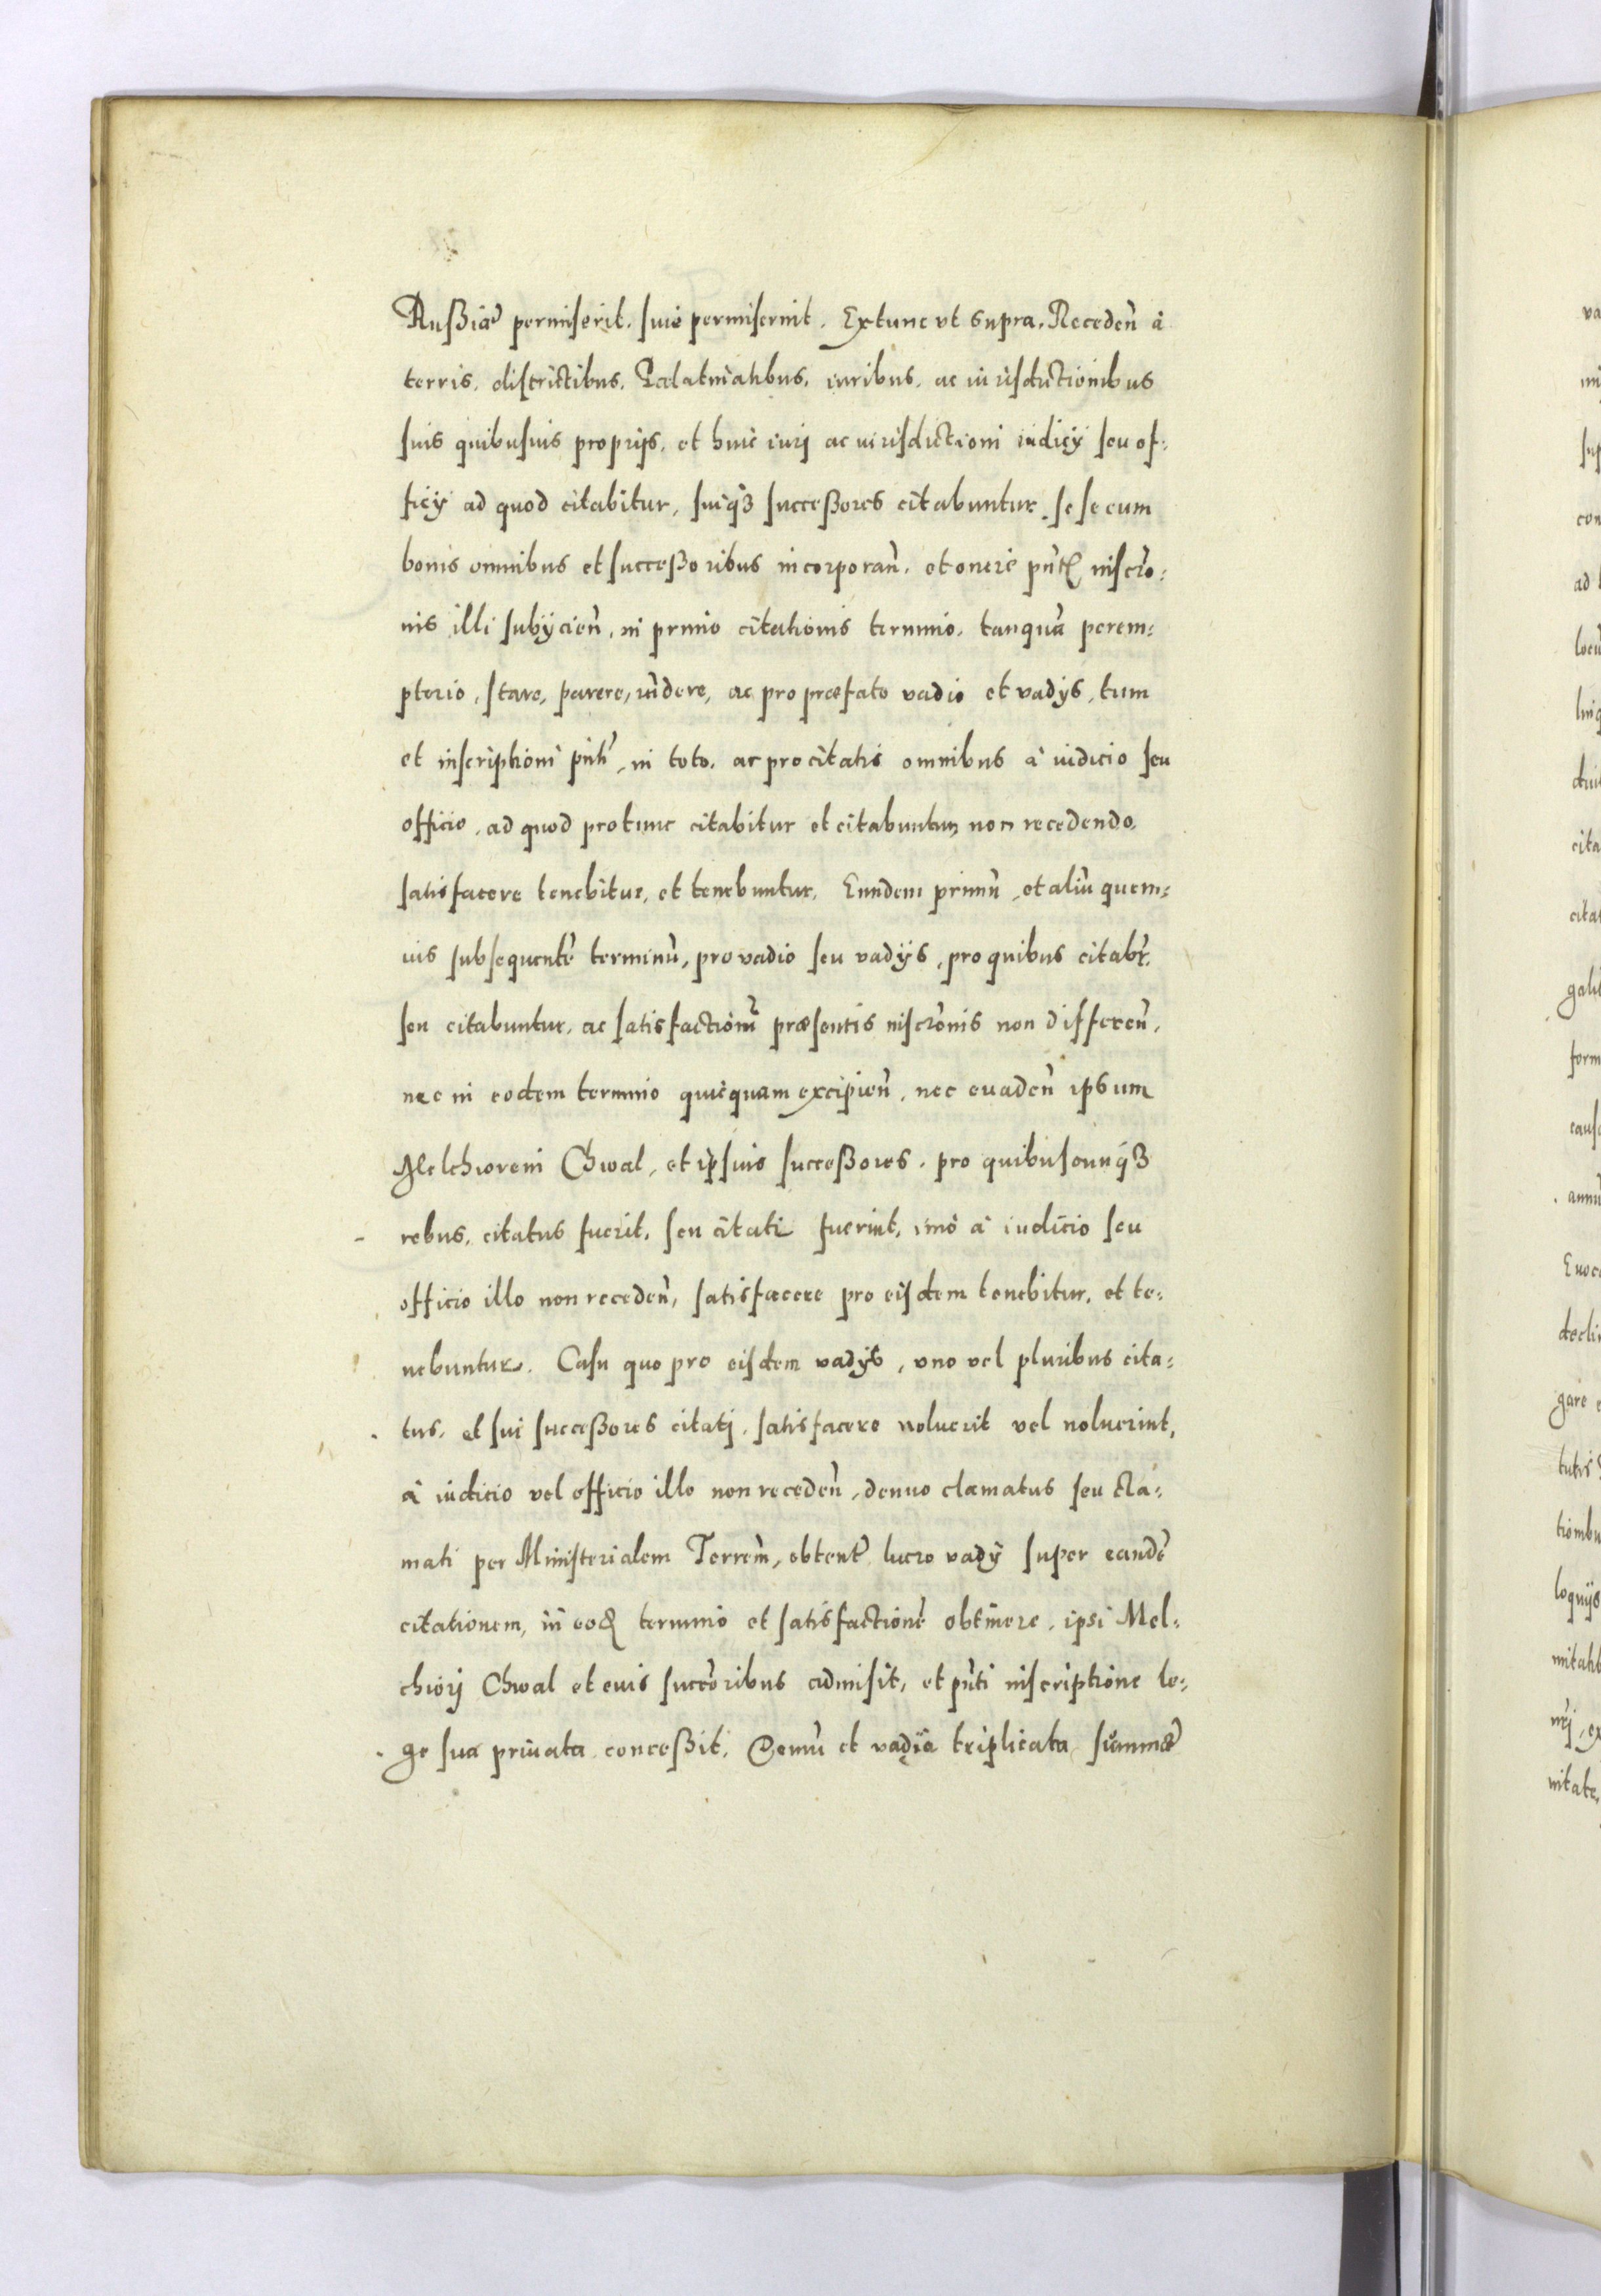 Rußiæ permiserit, suie permiserint. Extunc vt supra. Receden̄ à
terris, districtibus, Palatinatibus, iuribus, ac iurisdictionibus
suis quibusuis proprijs, et huic iuri ac iurisdictioni iudicÿ seu of:
ficÿ ad quod citabitur, suiq̷ȝ succeßores citabuntur, se se cum
bonis omnibus et succeßoribus incorporan̄, et oneri pn̄tis inscrō:
nis illi subÿcien̄, in primo citationis termino, tanquā perem:
ptorio, stare, parere, rn̄dere, ac pro præfato vadio et vadÿs, tum
et inscriptioni pn̄ti, in toto, ac pro citatis omnibus à iudicio seu
officio, ad quod protunc citabitur et citabuntur non recedendo,
satisfacere tenebitur, et tenebuntur, Eundem primū, et aliū quem:
uis subsequentē terminū, pro vadio seu vadÿs, pro quibus citabr̄,
seu citabuntur, ac satisfactionē præsentis inscrōnis non differen̄,
nec in eodem termino quicquam excipien̄, nec euaden̄ ipsum
Melchiorem Chwal, et ipsius succeßores, pro quibuscunq̷ȝ
rebus, citatus fuerit, seu citati fuerint, imò à iudicio seu
officio illo non receden̄, satisfacere pro eisdem tenebitur, et te:
nebuntur. Casu quo pro eisdem vadÿs, vno vel pluribus cita:
tus, et sui succeßores citatj, satisfacere noluerit vel noluerint,
à iudicio vel officio illo non receden̄, denuo clamatus seu cla:
mati per Ministerialem Terrēm, obtent̄ lucro vadÿ super eandē
citationem, in eod̄ termino et satisfactionē obtinere, ipsi Mel:
chiorj Chwal et euis succōribus admisit, et pn̄ti inscriptione le:
ge sua priuata conceßit. Demū et vadia triplicata summæ